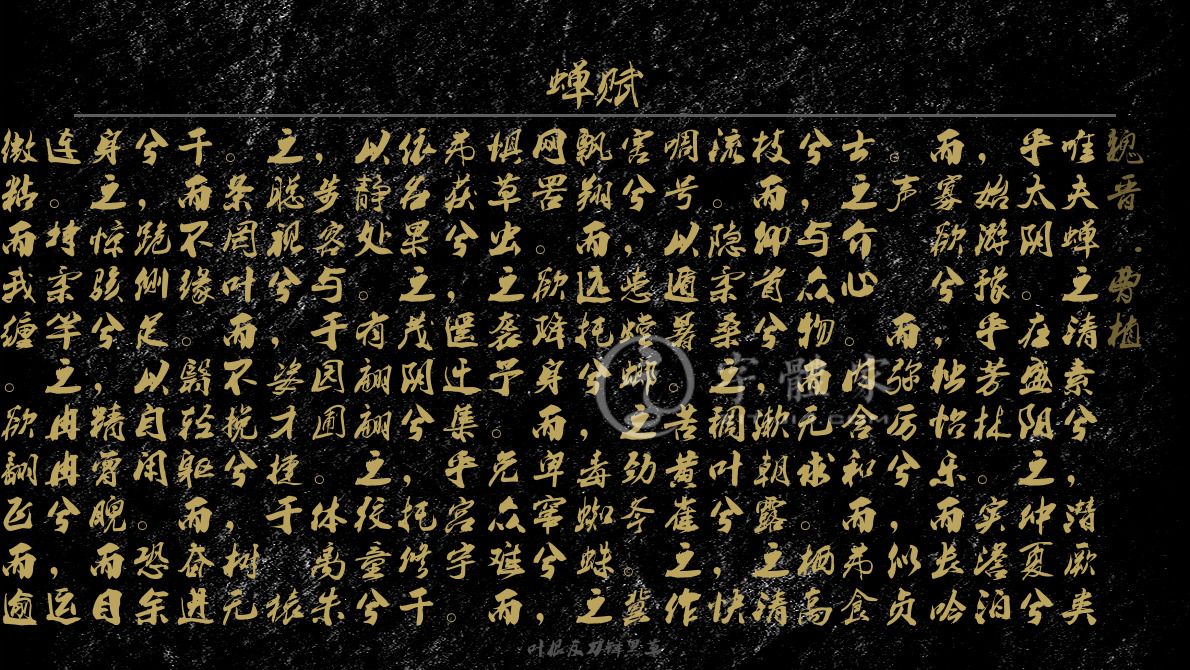 蝉赋
魏晋·曹植
唯夫蝉之清素兮，潜厥类
乎太阴。在盛阳之仲夏兮
，始游豫乎芳林。实澹泊
而寡欲兮，独怡乐而长吟
。声而弥厉兮，似贞
士之介心。内含和而弗食
兮，与众物而无求。栖高
枝而仰首兮，漱朝露之清
流。隐柔桑之稠叶兮，快
啁号以遁暑。苦黄雀之作
害兮，患螳螂之劲斧。冀
飘翔而远托兮，毒蜘蛛之
网罟。欲降身而卑窜兮，
惧草虫之袭予。免众难而
弗获兮，遥迁集乎宫宇。
依名果之茂阴兮，托修干
以静处。有翩翩之狡童兮
，步容与于园圃。体离朱
之聪视兮，姿才捷于猿
。条罔叶而不挽兮，树无
干而不缘。翳轻躯而奋进
兮，跪侧足以自闲。恐余
身之惊骇兮，精曾睨而目
连。持柔竿之冉冉兮，运
微粘而我缠。欲翻飞而逾
字體家